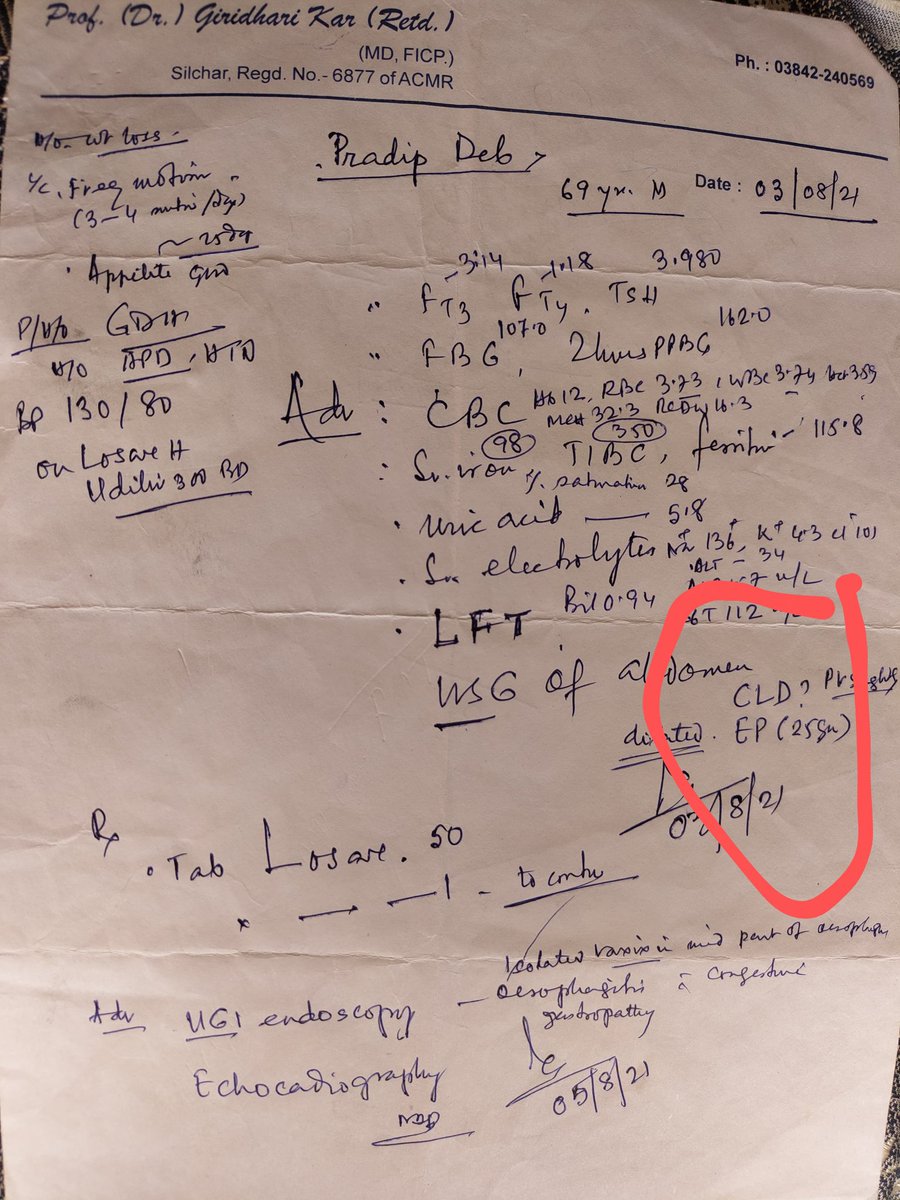 Prof. (Dr.) Giridhari Kar (Retd.)
(MD, FICP.)
Silchar, Regd. No.- 6877 of ACMR
Ph. : 03842-240569
H/o wt loss
Pradip Deb
69 yr. M
Date : 03/08/21
c/c. Freq motion
(3-4 motion/day)
Appitite good
P/H/O
H/O APD, HTN
BP 130/80
on Losare H
Udiliv 300 BD
3.14 1.18 3.980
FT3 FT4. TSH
107.0 162.0
FBG, 2 hours PPBG
Adv : CBC Hb 12, RBC 3.73, WBC 3.74
MCH 32.3 RCDW 16.3
98 350
Sr. iron TIBC, ferritin 115.8
% saturation 28
uric acid — 5.8
Sr electrolytes Na+ 136, K+ 4.3 cl- 101
ALT - 34
LFT Bil 0.94 U/L
GT 112
USG of abdomen
CLD?
dilated. EP (25gm)
03/8/21
Rx
Tab Losare. 50
1 - to contu
Isolated varix in mid part of oesophagus
Adv UGI endoscopy - oesophagitis c congestive
gastropathy
Echocadiography
05/8/21